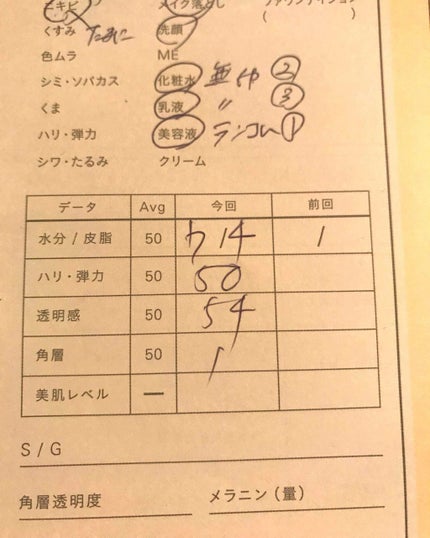 ニキビ メイク落とし ファウンデーション
くすみ たまに 洗顔 ( )
色ムラ ME
シミ・ソバカス 化粧水 無印 ②
くま 乳液 〃 ③
ハリ・弾力 美容液 ランコム ①
シワ・たるみ クリーム
データ Avg 今回 前回
水分 / 皮脂 50 14 1
ハリ・弾力 50 50
透明感 50 54
角層 50 1
美肌レベル —
S / G
角層透明度 メラニン（量）